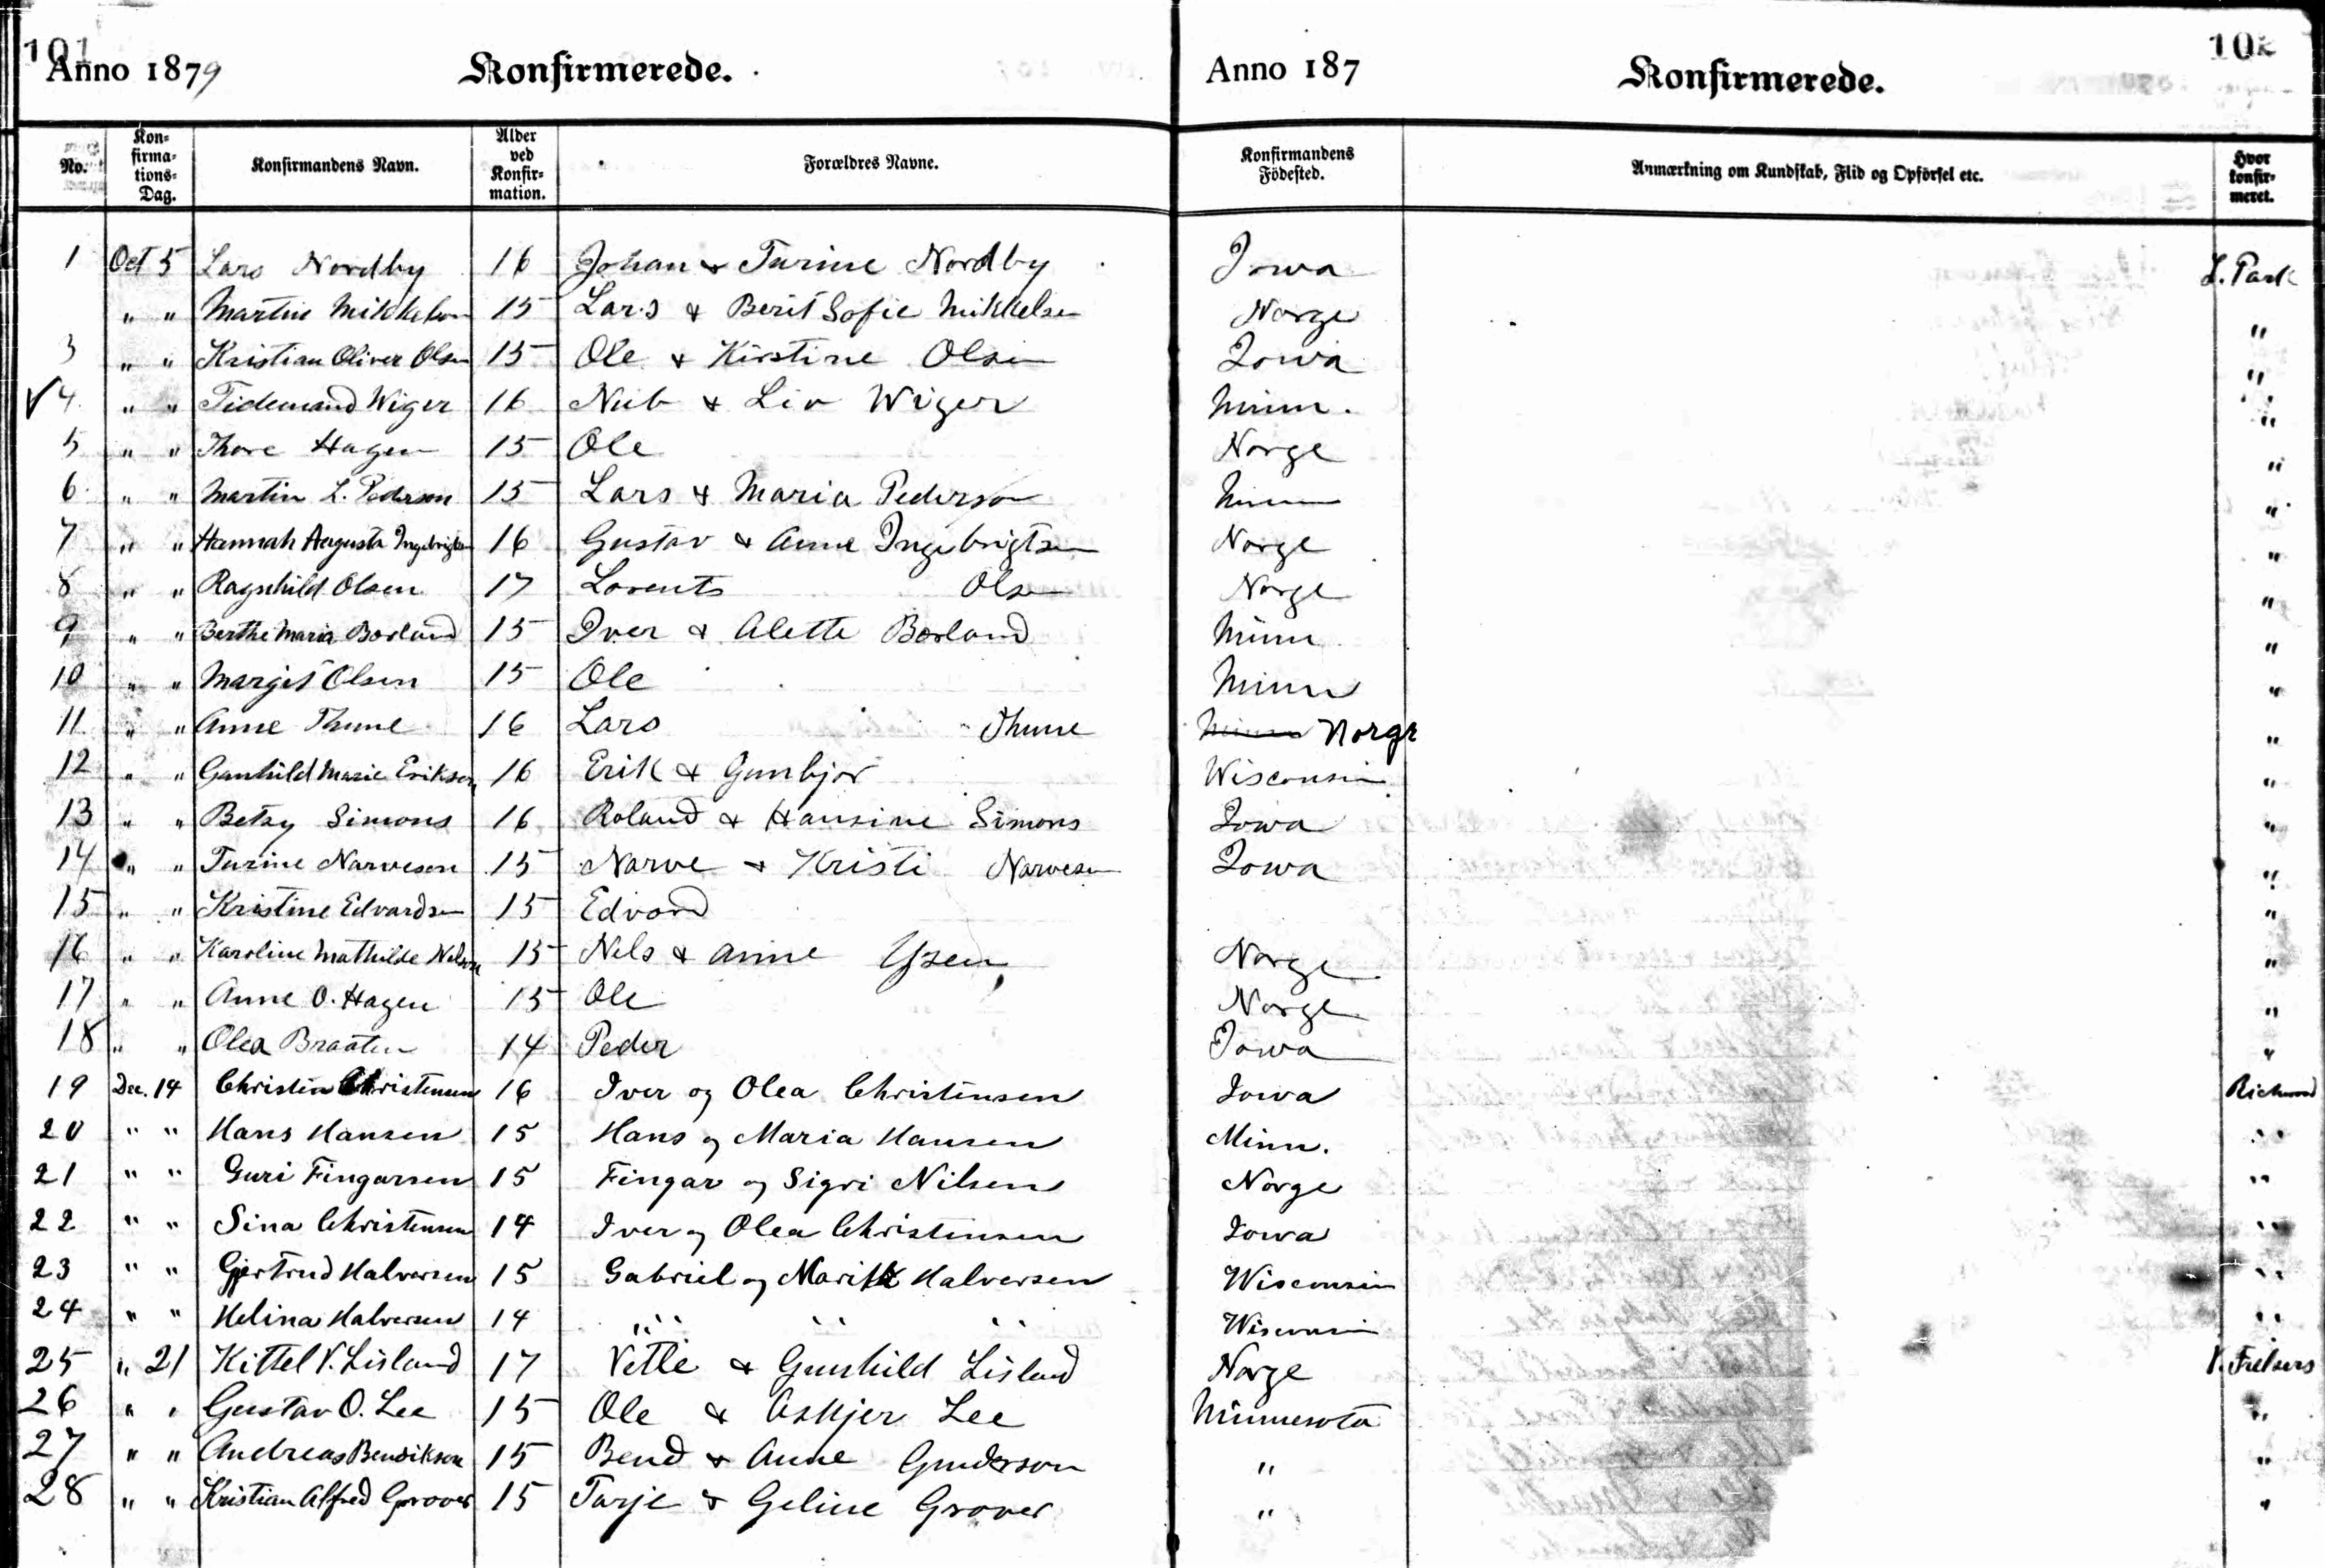 101 102
Anno 1879 Konfirmerede. Anno 187 Konfirmerede.
No. Kon=firma=tions=Dag. Konfirmandens Navn. Alder ved Konfir=mation. Forældres Navne. Konfirmandens Födested. Anmærkning om Kundskab, Flid og Opförsel etc. Hvor konfir=meret.
1 Oct 5 Lars Nordby 16 Johan & Turine Nordby Iowa L. Park
" " Martin Mikkelson 15 Lars & Berit Sofie Mikkelsen Norge "
3 " " Kristian Oliver Olsen 15 Ole & Kirstine Olsen Iowa "
✓ 4 " " Tidemand Wiger 16 & Liv Wiger Minn. "
5 " " Thore Hagen 15 Ole Norge "
6 " " Martin L. Pederson 15 Lars & Maria Pederson Minn "
7 " " Hannah Augusta Ingebrigtsen 16 Gustav & Anne Ingebrigtsen Norge "
8 " " Ragnhild Olsen 17 Lorents Olsen Norge "
9 " " Berthe Maria Borland 15 Iver & Alette Borland Minn "
10 " " Margit Olsen 15 Ole Minn "
11 " " Anne Thune 16 Lars Thune Minn Norge "
12 " " Gunhild Marie Erikson 16 Erik & Gunbjor Wisconsin "
13 " " Betsy Simons 16 Roland & Hansine Simons Iowa "
14 " " Turine Narveson 15 Narve & Kristi Narvesen Iowa "
15 " " Kristine Edvardsen 15 Edvard "
16 " " Karoline Mathilde Nelson 15 Nels & Anne Norge "
17 " " Anne O. Hagen 15 Ole Norge "
18 " " Olea Braaten 14 Peder Iowa "
19 Dec. 14 Christen Christensen 16 Iver og Olea Christensen Iowa Richwood
20 " " Hans Hansen 15 Hans og Maria Hansen Minn. "
21 " " Guri Fingarsen 15 Fingar og Sigri Nilsen Norge "
22 " " Sina Christensen 14 Iver og Olea Christensen Iowa "
23 " " Gjertrud Halversen 15 Gabriel og Halversen Wisconsin "
24 " " Helina Halversen 14 " " " Wisconsin "
25 " 21 Kittel V. Lisland 17 Vetle & Gunhild Lisland Norge V. Frelsers
26 " " Gustav O. Lee 15 Ole & Askjer Lee Minnesota "
27 " " Andreas Bendikson 15 Bend & Anne Gunderson " "
28 " " Kristian Alfred Grover 15 Tarje & Geline Grover " "